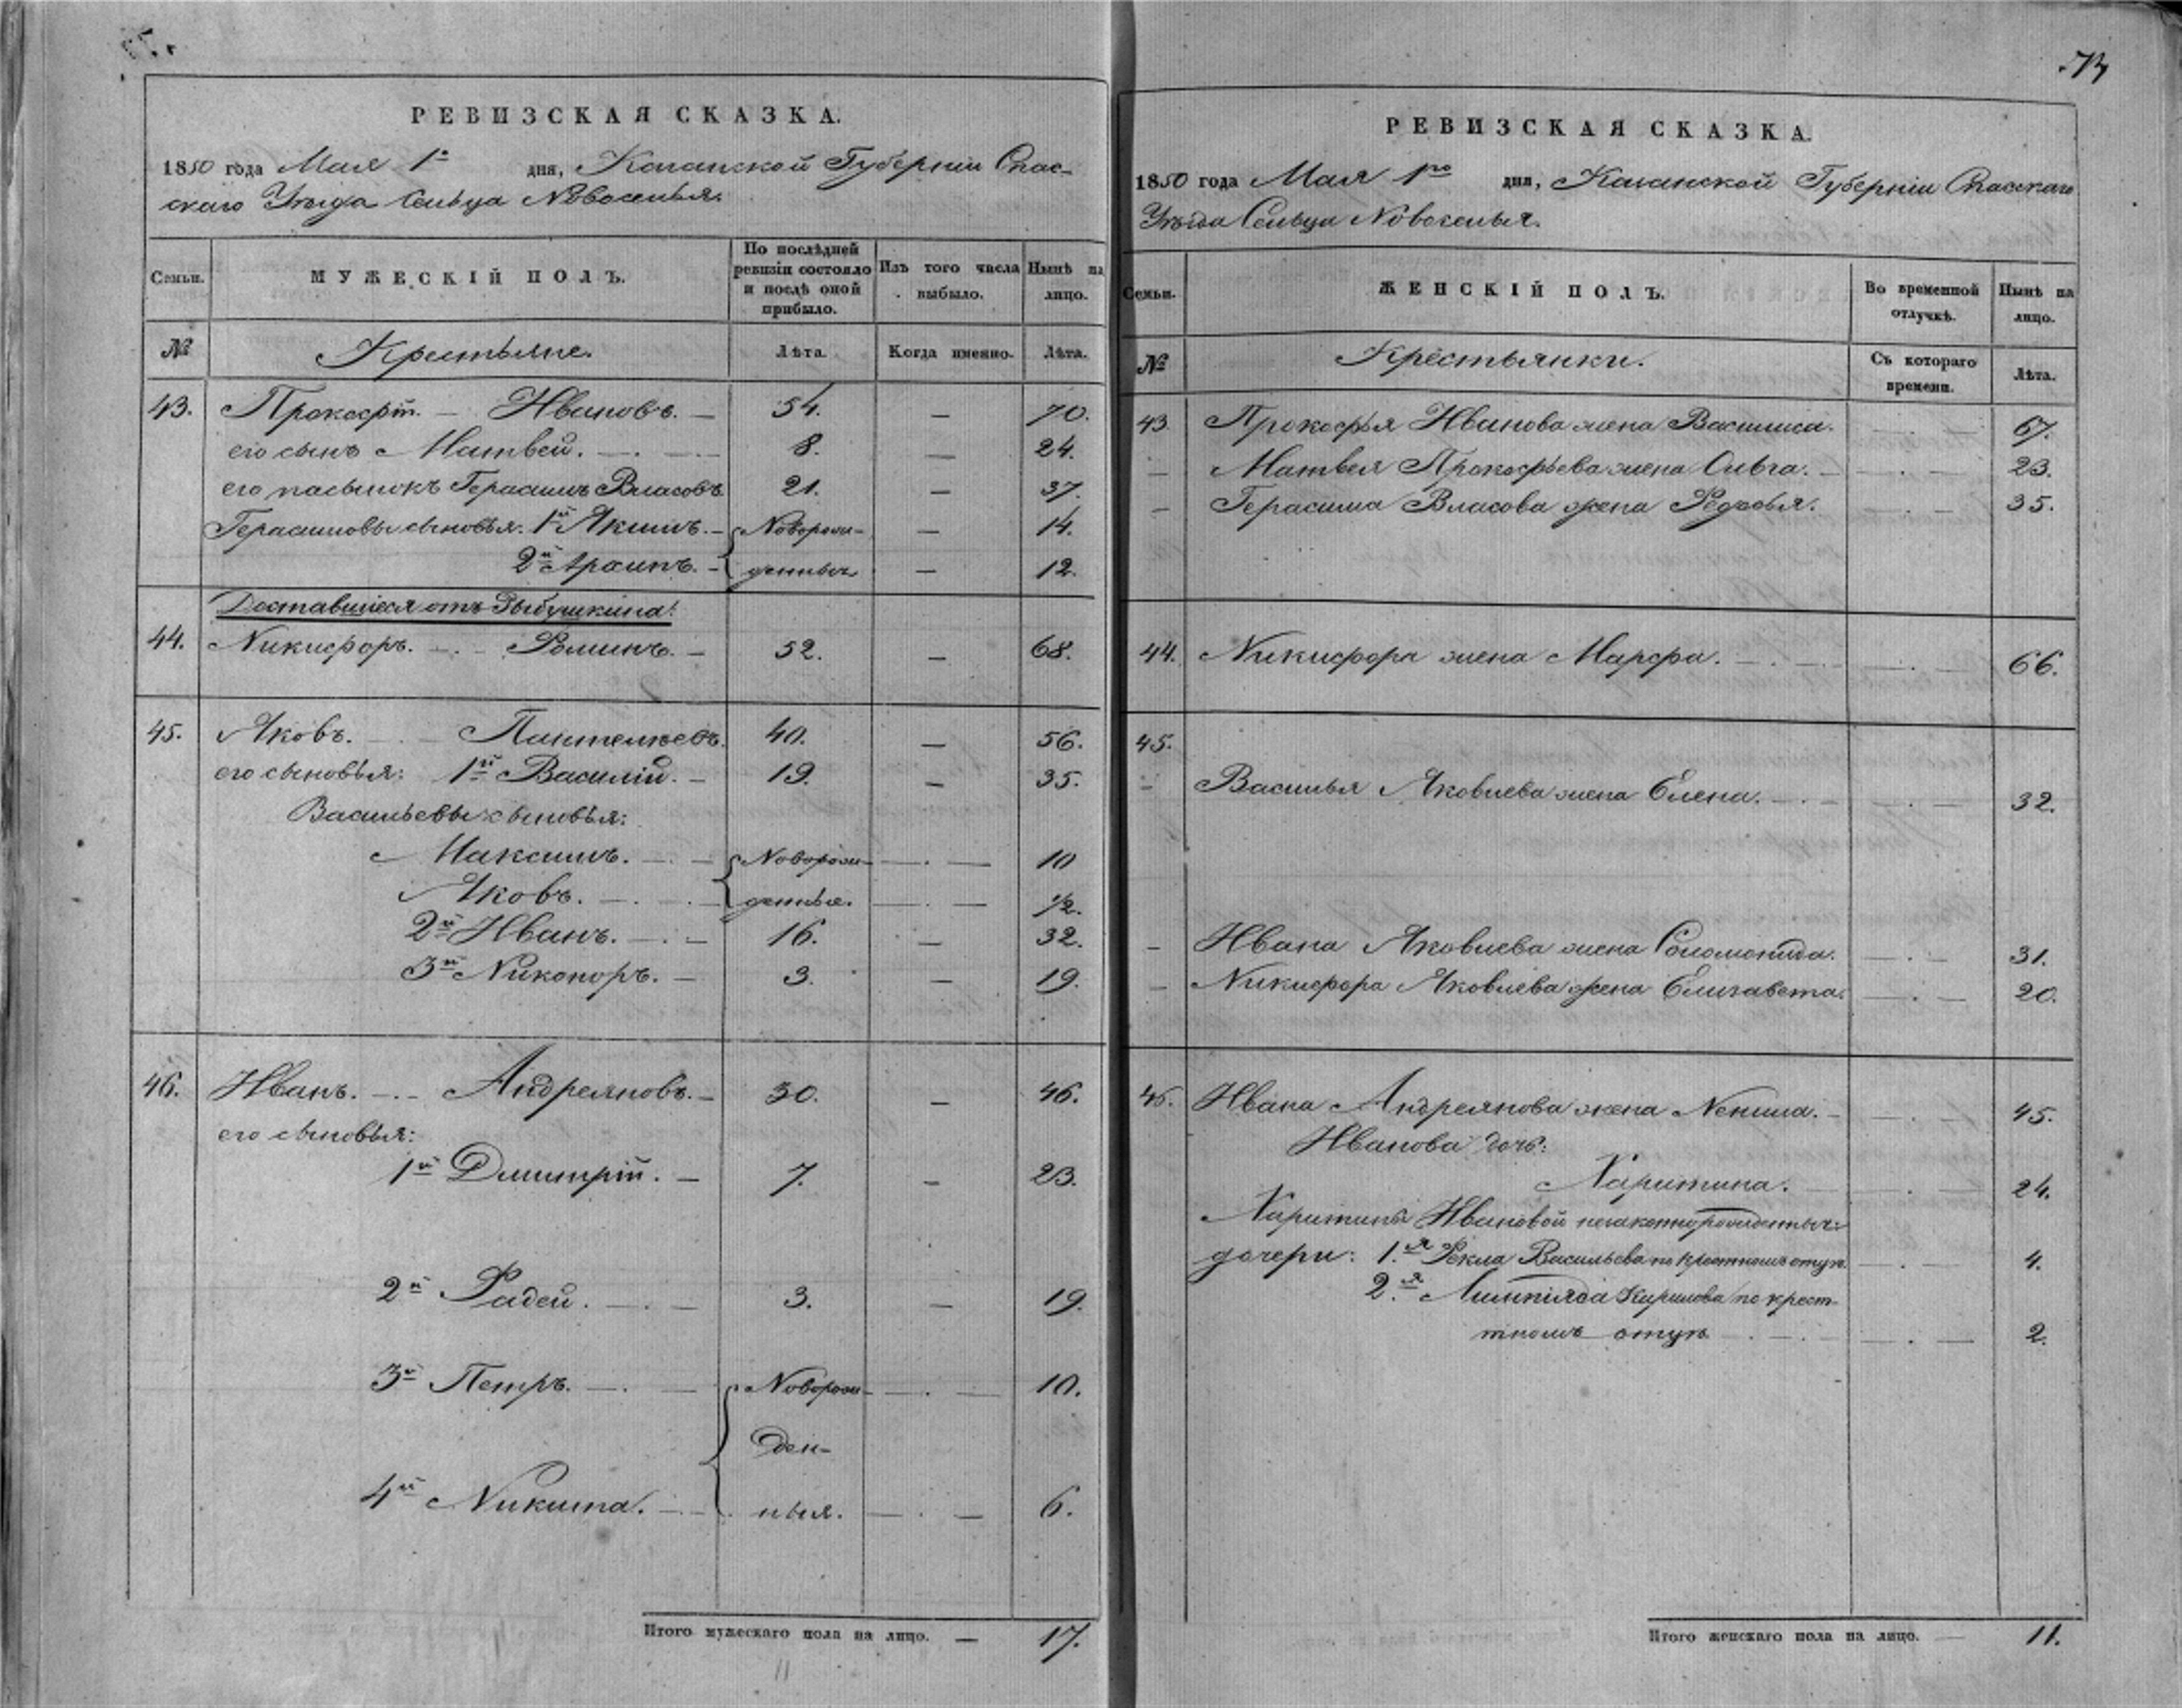 73
РЕВИЗСКАЯ СКАЗКА.
1850 года Мая 1го дня, Казанской Губерніи Спас-
скаго Уѣзда Сельца Новоселья.
Семьи. МУЖЕСКІЙ ПОЛЪ. По послѣдней ревизіи состояло и послѣ оной прибыло. Изъ того числа выбыло. Нынѣ на лицо.
№ Крестьяне. Лѣта. Когда именно. Лѣта.
43. Прокофій. — Ивановъ. — 54. — 70.
его сынъ Матвей. — 8. — 24.
его пасынокъ Герасимъ Власовъ 21. — 37.
Герасимовы сыновья. 1й Акимъ. — Новорож- — 14.
2й — денныя — 12.
Доставшіеся отъ
44. Никифоръ. — Фоминъ. — 52. — 68.
45. Яковъ. — Пантелѣевъ. 40. — 56.
его сыновья: 1й Василій. — 19. — 35.
Васильевы сыновья:
Максимъ. — Новорож- — 10
Яковъ. — денныя. — 1/2.
2й Иванъ. — 16. — 32.
3й Никоноръ. — 3. — 19.
46. Иванъ. — Андреяновъ. — 30. — 46.
его сыновья:
1й Дмитрій. — 7. — 23.
2й Фадей. — 3. — 19.
3й Петръ. — Новорож- — 10.
ден-
4й Никита. — ныя. — 6.
Итого мужескаго пола на лицо. — 17.
РЕВИЗСКАЯ СКАЗКА.
1850 года Мая 1го дня, Казанской Губерніи Спасскаго
Уѣзда Сельца Новоселья.
Семьи. ЖЕНСКІЙ ПОЛЪ. Во временной отлучкѣ. Нынѣ на лицо.
№ Крестьянки. Съ котораго времени. Лѣта.
43. Прокофья Иванова жена Василиса. — 67.
— Матвея Прокофьева жена Ольга. — 23.
— Герасима Власова жена Федосья. 35.
44. Никифора жена Марфа. — 66.
45.
— Василья Яковлева жена Елена. — 32.
— Ивана Яковлева жена Соломонида. — 31.
— Никифора Яковлева жена Елизавета. — 20.
46. Ивана Андреянова жена Ненила. — 45.
Иванова дочь:
Харитина. — 24.
Харитины Ивановой незаконнорожденныя
дочери: 1.я Фекла Васильева по крестномъ отцѣ. — 4.
2.я Алимпіяда Кирилова по крест-
тномъ отцѣ — 2.
Итого женскаго пола на лицо. — 11.